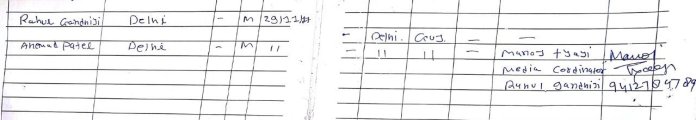 Rahul Gandhiji Delhi - M 29/11/17
Ahemad Patel Delhi - M 11
- Delhi. Guj. - -
- 11 11 - Manoj tyagi Manoj
Media Cordinator Tyagi
Rahul gandhiji